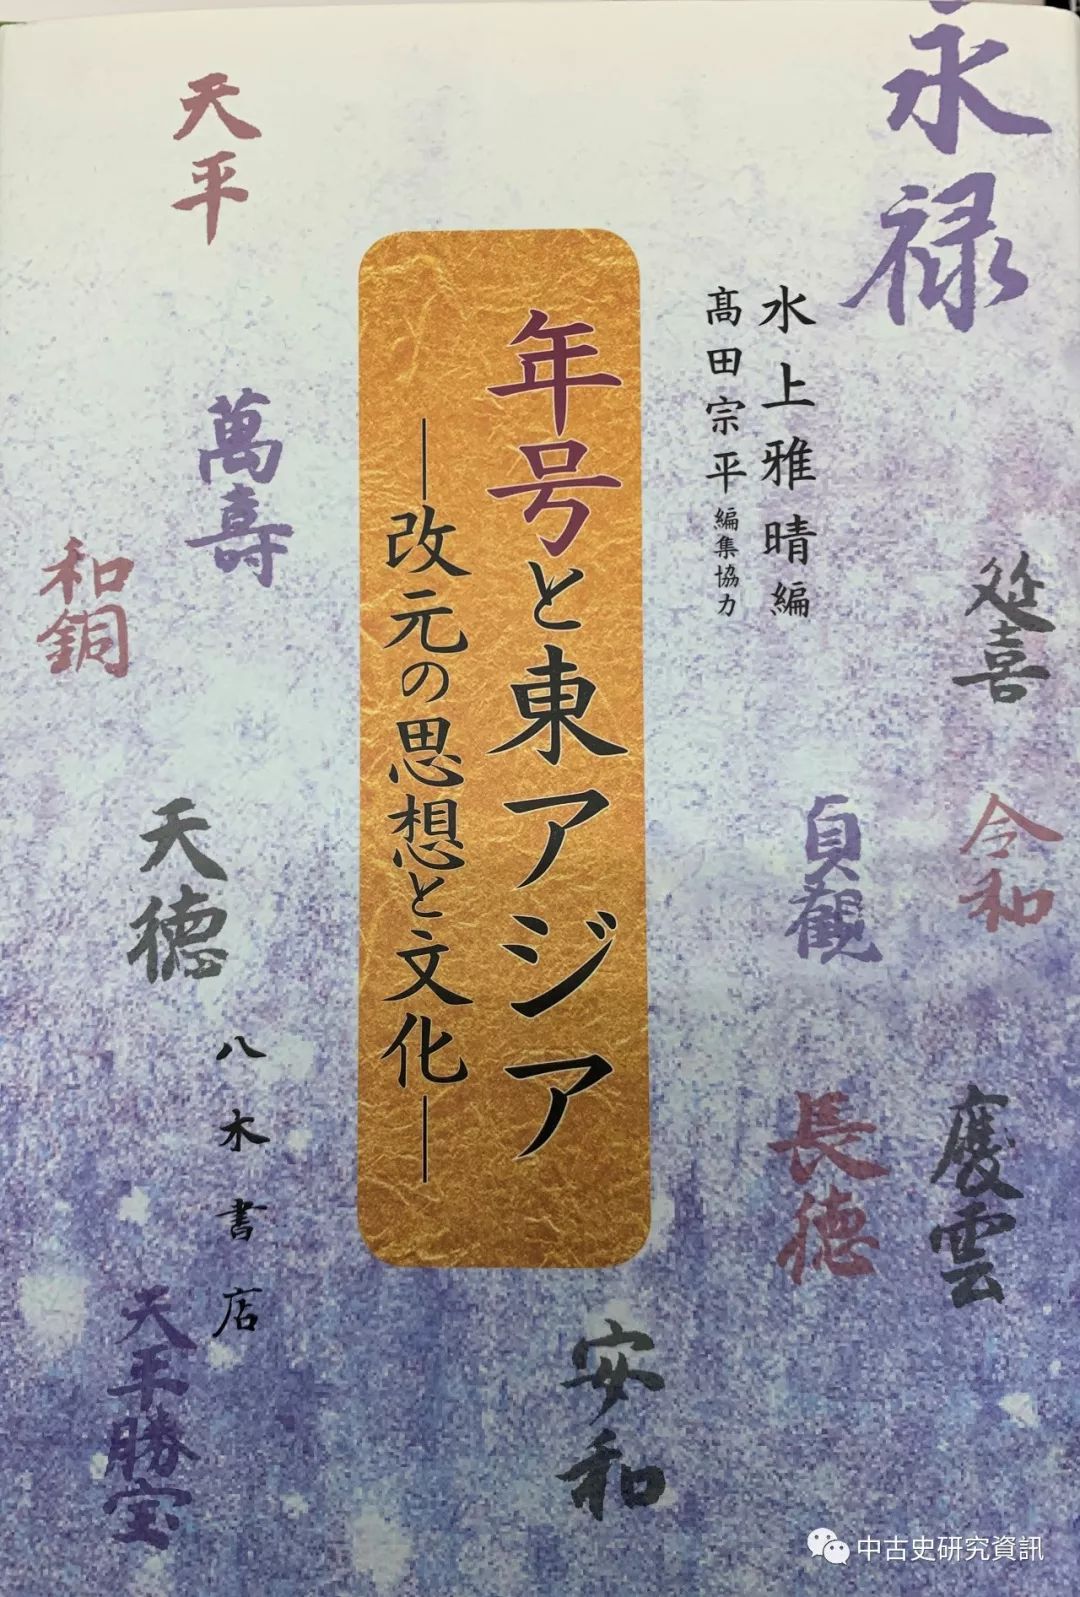 永禄
延喜
令和
慶雲
貞観
長徳
水上雅晴編
髙田宗平編集協力
年号と東アジア
―改元の思想と文化―
安和
天平
萬壽
和銅
天徳
八木書店
天平勝宝
中古史研究資訊